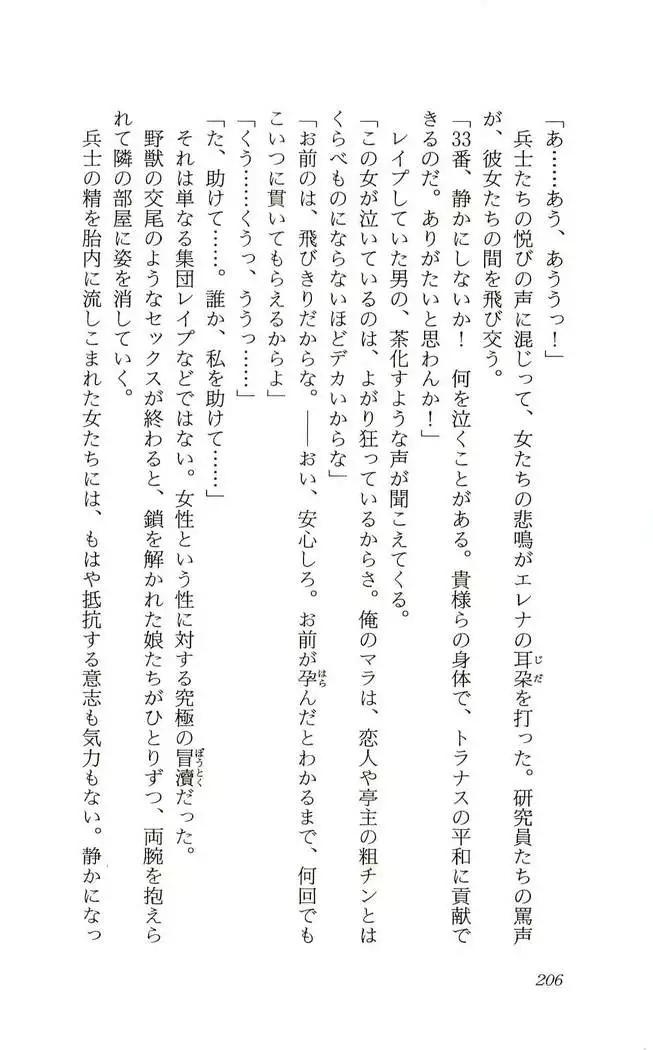 「あ……あう、あううっ！」
兵士たちの悦びの声に混じって、女たちの悲鳴がエレナの耳朶を打った。研究員たちの罵声
が、彼女たちの間を飛び交う。
「33番、静かにしないか！　何を泣くことがある。貴様らの身体で、トラナスの平和に貢献で
きるのだ。ありがたいと思わんか！」
レイプしていた男の、茶化すような声が聞こえてくる。
「この女が泣いているのは、よがり狂っているからさ。俺のマラは、恋人や亭主の粗チンとは
くらべものにならないほどデカいからな」
「お前のは、飛びきりだからな。――おい、安心しろ。お前が孕んだとわかるまで、何回でも
こいつに貫いてもらえるからよ」
「くう……くうっ、ううっ……」
「た、助けて……。誰か、私を助けて……」
それは単なる集団レイプなどではない。女性という性に対する究極の冒瀆だった。
野獣の交尾のようなセックスが終わると、鎖を解かれた娘たちがひとりずつ、両腕を抱えら
れて隣の部屋に姿を消していく。
兵士の精を胎内に流しこまれた女たちには、もはや抵抗する意志も気力もない。静かになっ
じだ
はら
ぼうとく
206